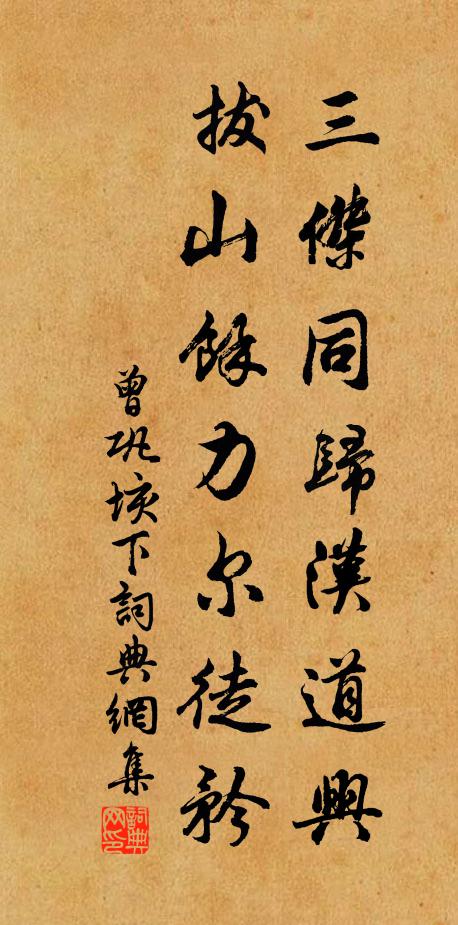 三傑同歸漢道興
拔山餘力尔徒矜
曾巩垓下詞典網集
詞典网印